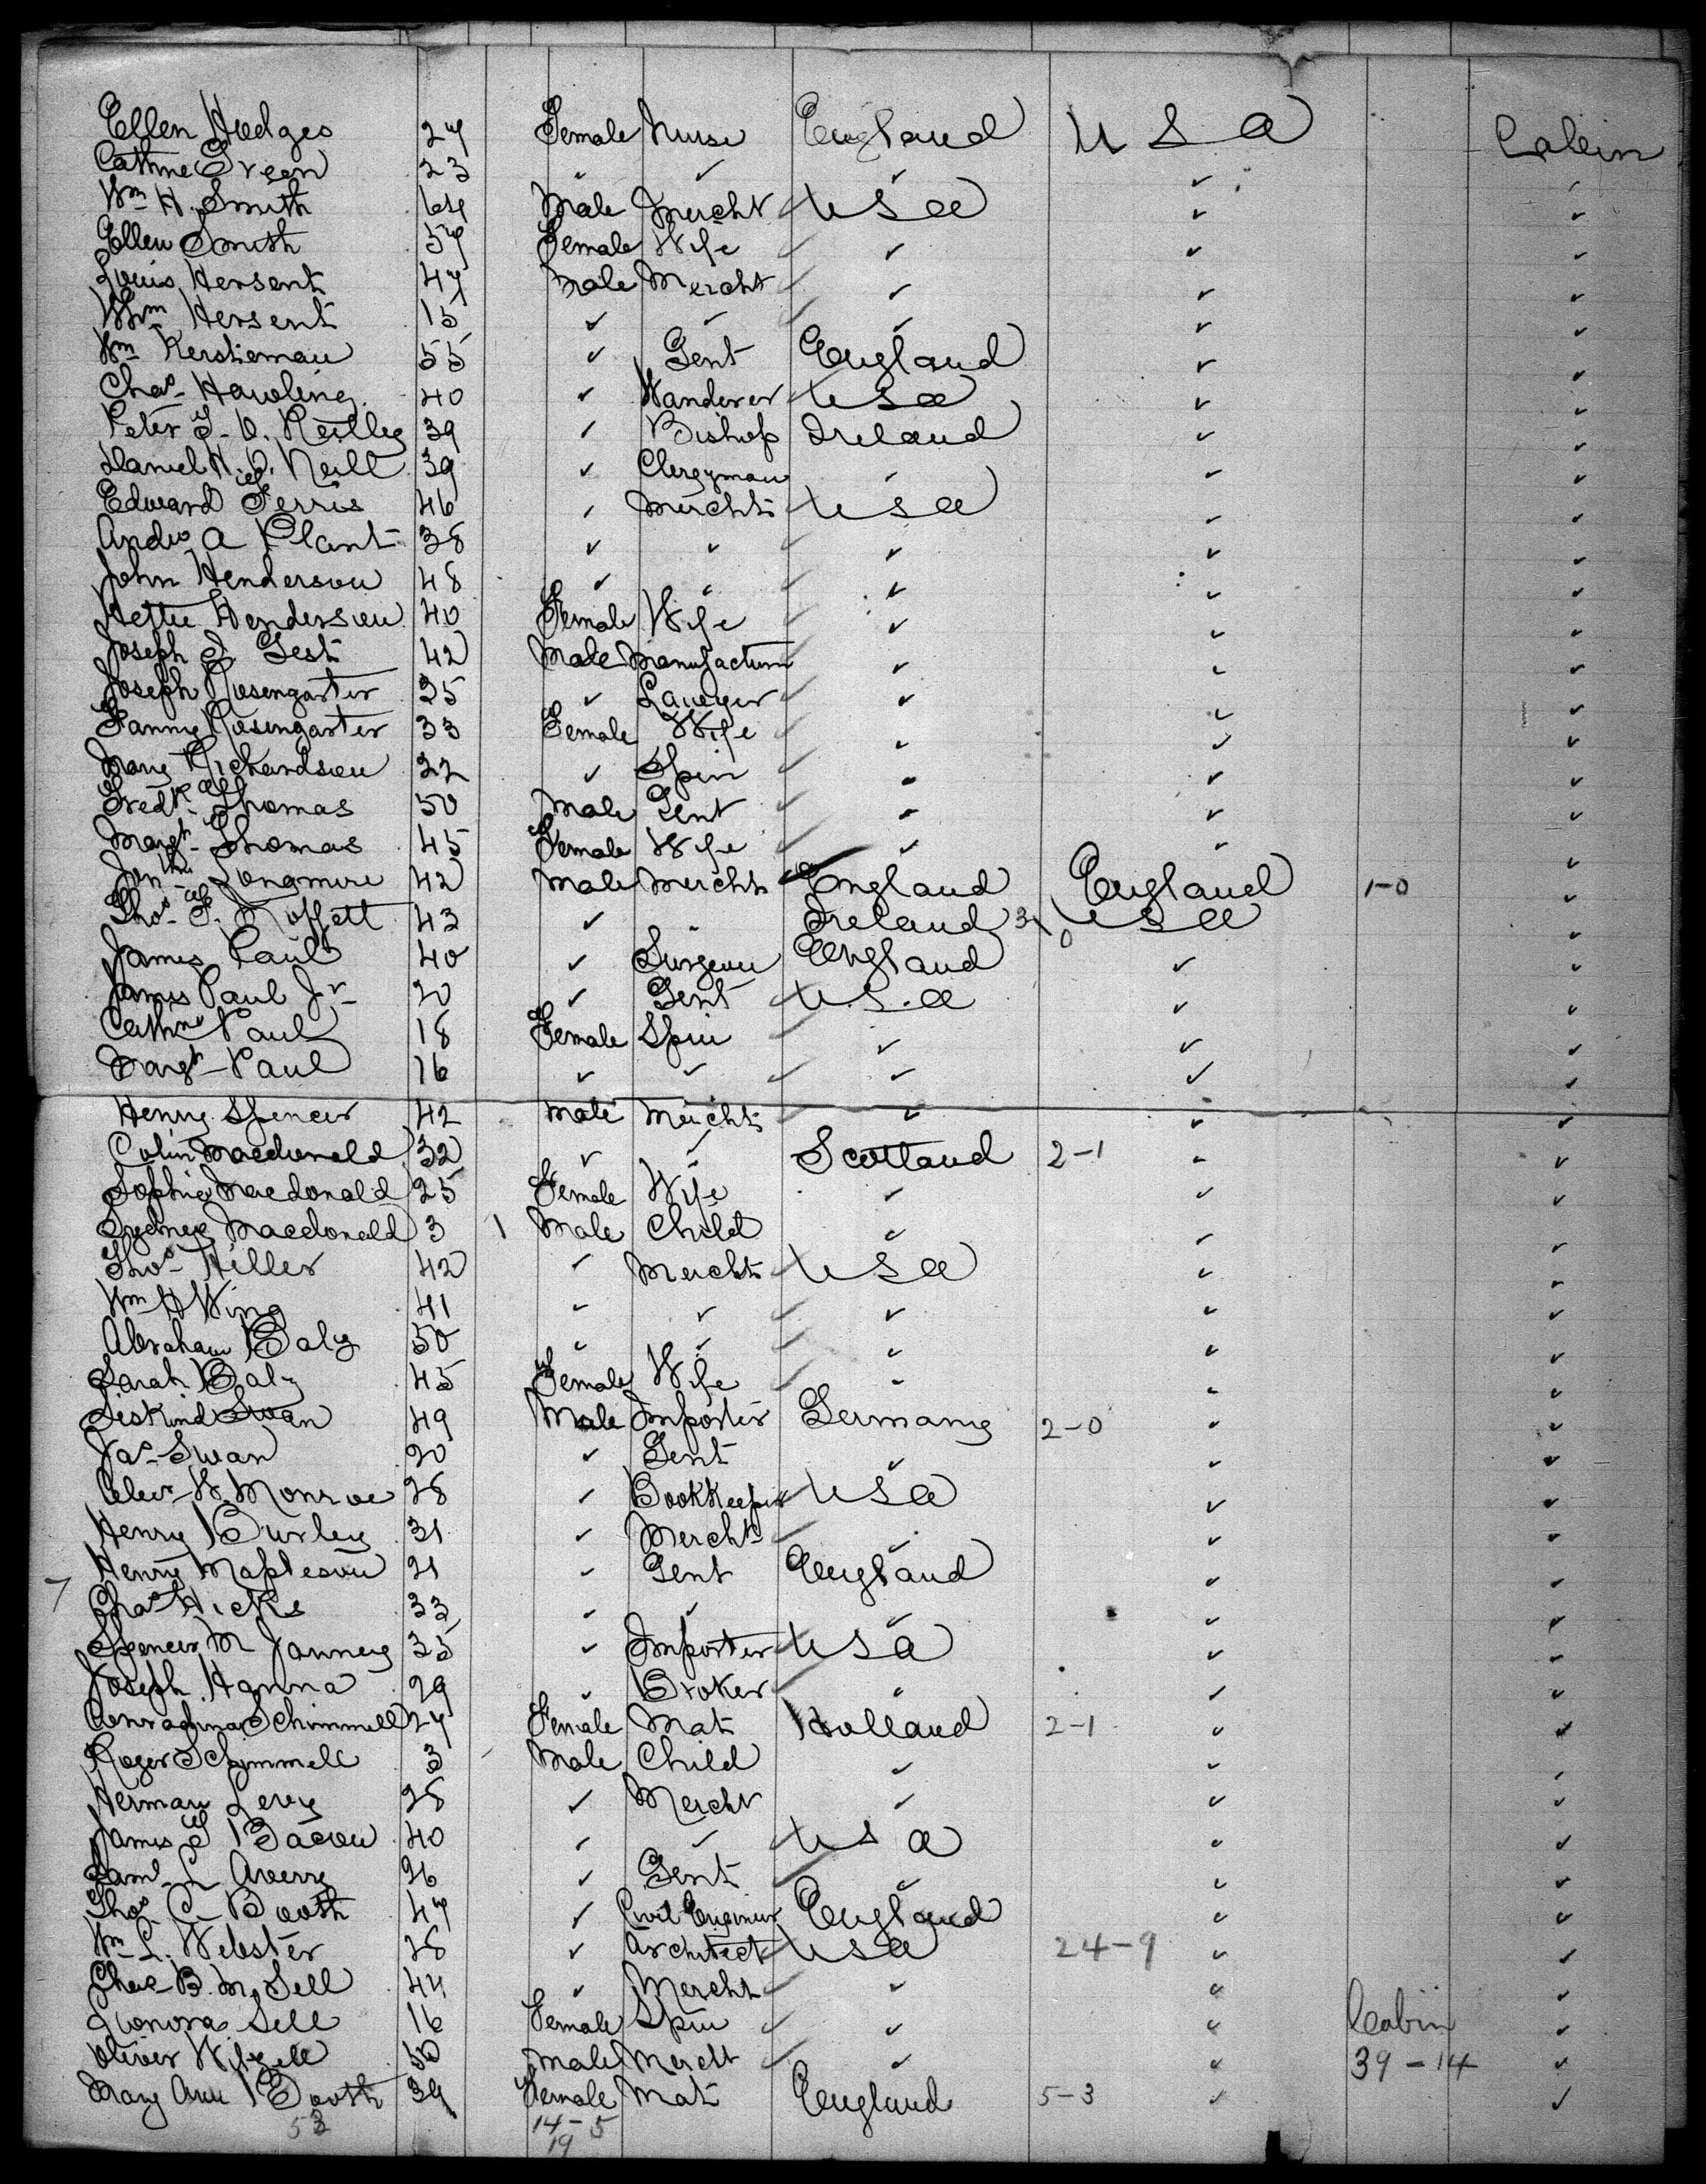 Ellen Hedges 27 Female Nurse England U S A Cabin
Cathne Green 23 ✓ ✓ ✓ ✓ ✓
Wm H. Smith 64 Male Mercht U S A ✓ ✓
Ellen Smith 57 Female Wife ✓ ✓ ✓
Louis Hersent 47 Male Mercht ✓ ✓ ✓
Wm Hersent 15 ✓ ✓ ✓ ✓ ✓
Wm Kerstieman 55 ✓ Gent England ✓ ✓
Chas Hawling 40 ✓ Wanderer U S A ✓ ✓
Peter J. O. Reilly 39 ✓ Bishop Ireland ✓ ✓
Daniel H. O. Neill 39 ✓ Clergyman ✓ ✓ ✓
Edward Ferris 46 ✓ Mercht U S A ✓ ✓
Andw A Plant 38 ✓ ✓ ✓ ✓ ✓
John Henderson 48 ✓ ✓ ✓ ✓ ✓
Hettie Henderson 40 Female Wife ✓ ✓ ✓
Joseph J. Gest 42 Male Manufacturer ✓ ✓ ✓
Joseph Rosengarter 35 ✓ Lawyer ✓ ✓ ✓
Fanny Rosengarter 33 Female Wife ✓ ✓ ✓
Mary Richardson 32 ✓ Spin ✓ ✓ ✓
Fredk Thomas 50 Male Gent ✓ ✓ ✓
Margt Thomas 45 Female Wife ✓ ✓ ✓
Jonthn Longmire 42 Male Mercht England England 1-0 ✓
Thos F. Moffett 43 ✓ ✓ Ireland 3 0 U S A ✓
James Paul 40 ✓ Surgeon England ✓ ✓
James Paul Jr 20 ✓ Gent U. S. A ✓ ✓
Cathne Paul 18 Female Spin ✓ ✓ ✓
Margt Paul 16 ✓ ✓ ✓ ✓ ✓
Henry Spencer 42 Male Mercht ✓ ✓ ✓
Colin Macdonald 32 ✓ ✓ Scotland 2-1 ✓ ✓
Sophie Macdonald 25 Female Wife ✓ ✓ ✓
Sydney Macdonald 3 1 Male Child ✓ ✓ ✓
Thos Hiller 42 ✓ Mercht U S A ✓ ✓
Wm H Wing 41 ✓ ✓ ✓ ✓ ✓
Abraham Baly 50 ✓ ✓ ✓ ✓ ✓
Sarah Baly 45 Female Wife ✓ ✓ ✓
Siskind Swan 49 Male Importer Germany 2-0 ✓ ✓
Jas Swan 20 ✓ Gent ✓ ✓ ✓
Alexr W. Monroe 28 ✓ Bookkeeper U S A ✓ ✓
Henry Burley 31 ✓ Mercht ✓ ✓ ✓
Henry Mapleson 21 ✓ Gent England ✓ ✓
Chas Hicks 33 ✓ ✓ ✓ ✓ ✓
Spencer M Janney 35 ✓ Importer U S A ✓ ✓
Joseph Hanna 29 ✓ Broker ✓ ✓ ✓
Conradina Schimmell 27 Female Mat Holland 2-1 ✓ ✓
Roger Schimmell 3 Male Child ✓ ✓ ✓
Herman Levy 28 ✓ Mercht ✓ ✓ ✓
James T Bacon 40 ✓ ✓ U S A ✓ ✓
Saml L Averry 26 ✓ Gent ✓ ✓ ✓
Thos C. Booth 47 ✓ Civil Engineer England ✓ ✓
Wm L. Webster 28 ✓ Architect U S A 24-9 ✓ ✓
Chas B. M. Sell 44 ✓ Mercht ✓ ✓ ✓
Honora Sell 16 Female Spin ✓ ✓ Cabin ✓
Oliver 50 Male Mercht ✓ ✓ 39-14 ✓
Mary Ann Booth 39 Female Mat England 5-3 ✓ ✓
53 14-5
19